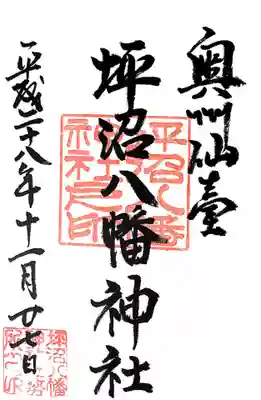 奥州仙臺
坪沼八幡神社
平成二十八年十一月廿七日
坪沼八幡
神社之印